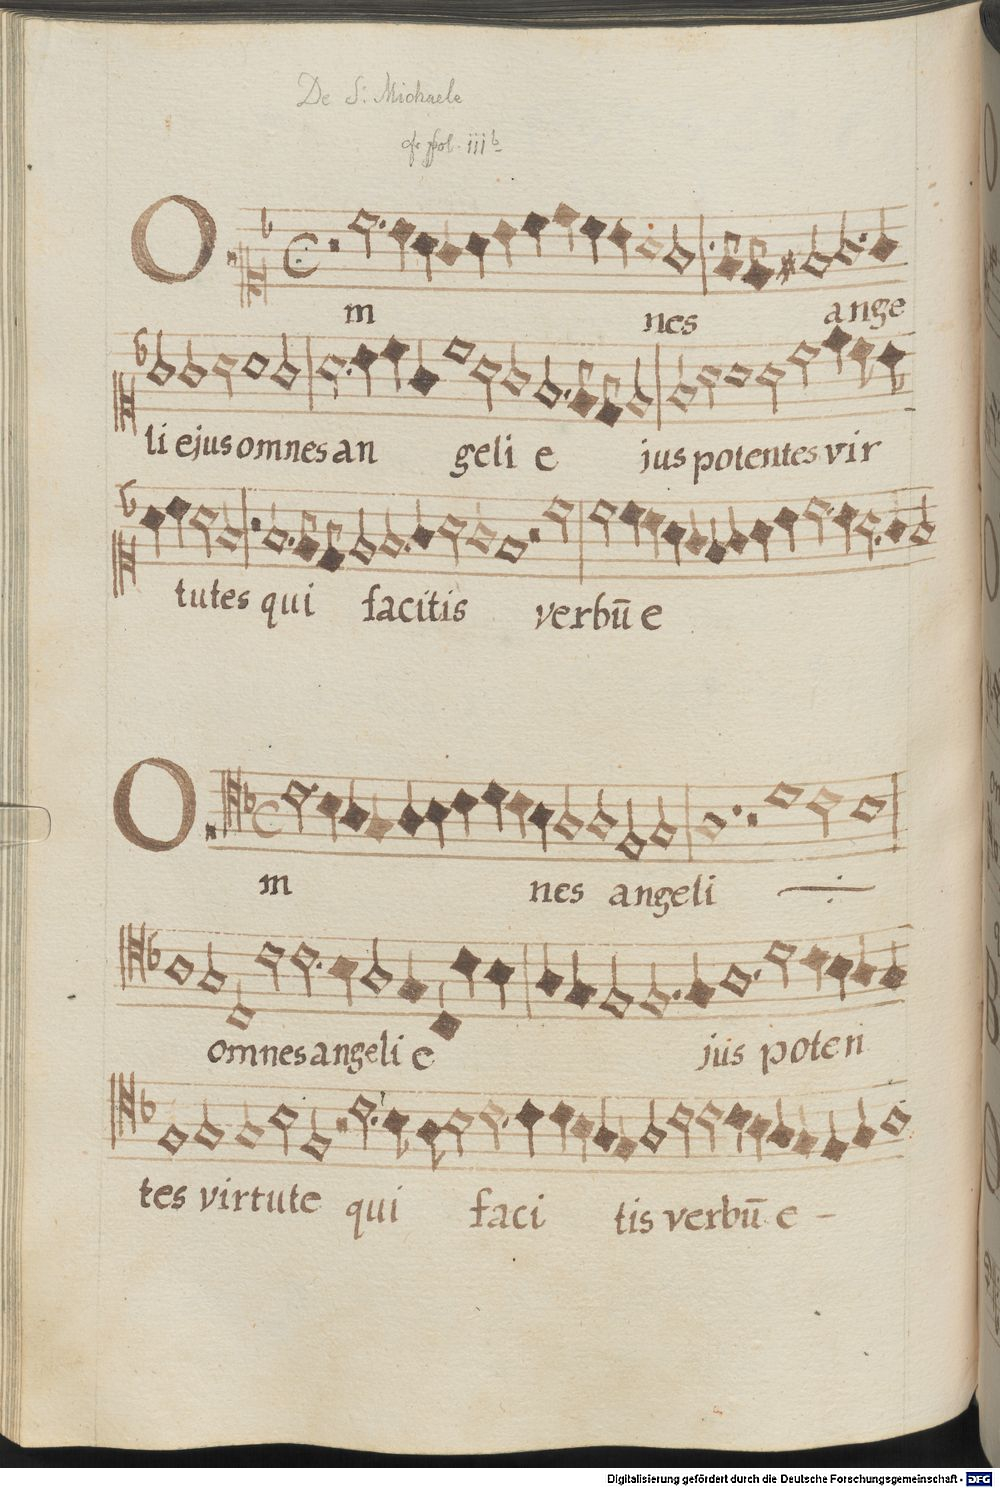 De S. Michaele
cfr fol. iiib
O
m nes ange
li ejus omnes an geli e ius potentes vir
tutes qui facitis verbū e
O
m nes angeli
omnes angeli e jus poten
tes virtute qui faci tis verbū e -
Digitalisierung gefördert durch die Deutsche Forschungsgemeinschaft - DFG